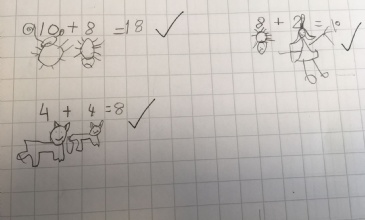 10 + 8 = 18
8 + 2 = 10
4 + 4 = 8